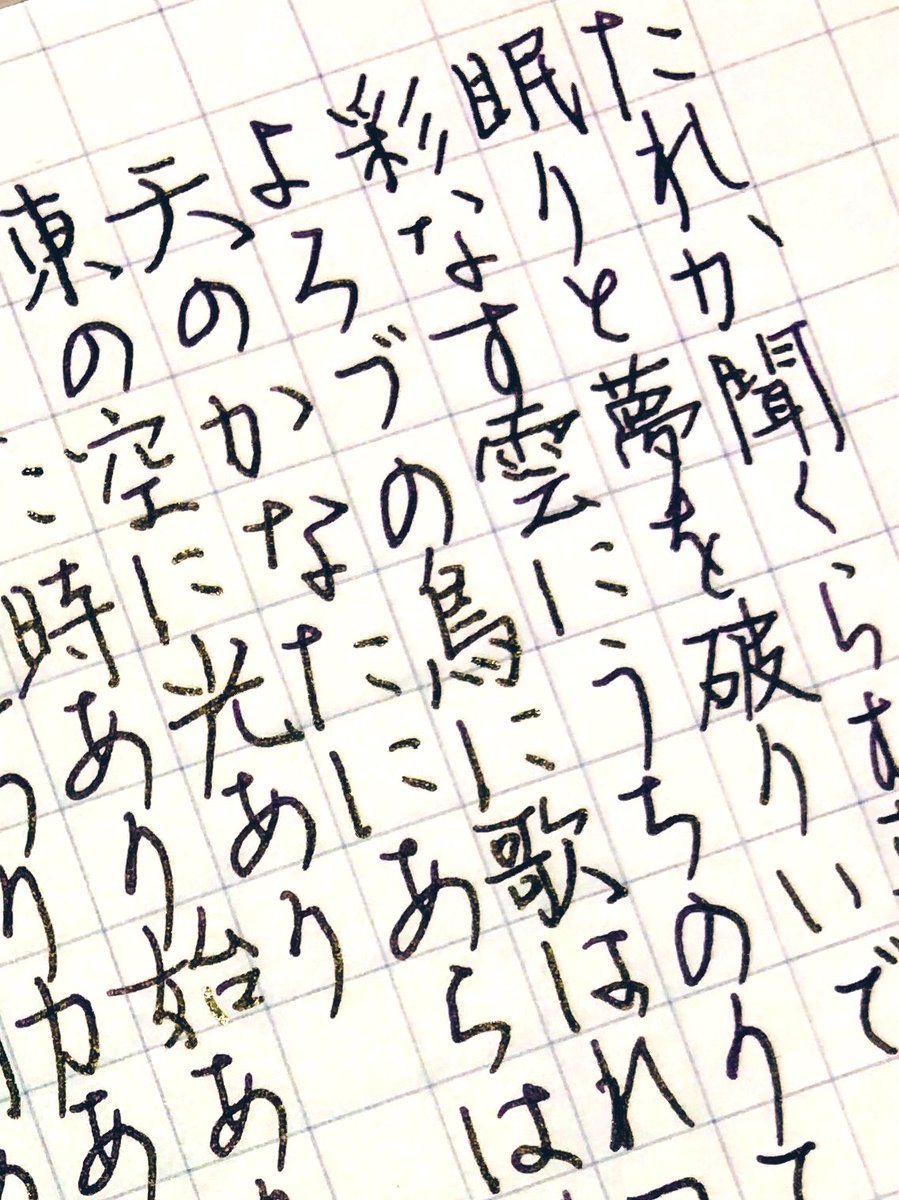 たれか聞くらむ
眠りと夢を破りいで
彩なす雲にうちのりて
よろづの鳥に歌はれ
天のかなたにあらは
東の空に光あり
に時あり始あ
り力あ